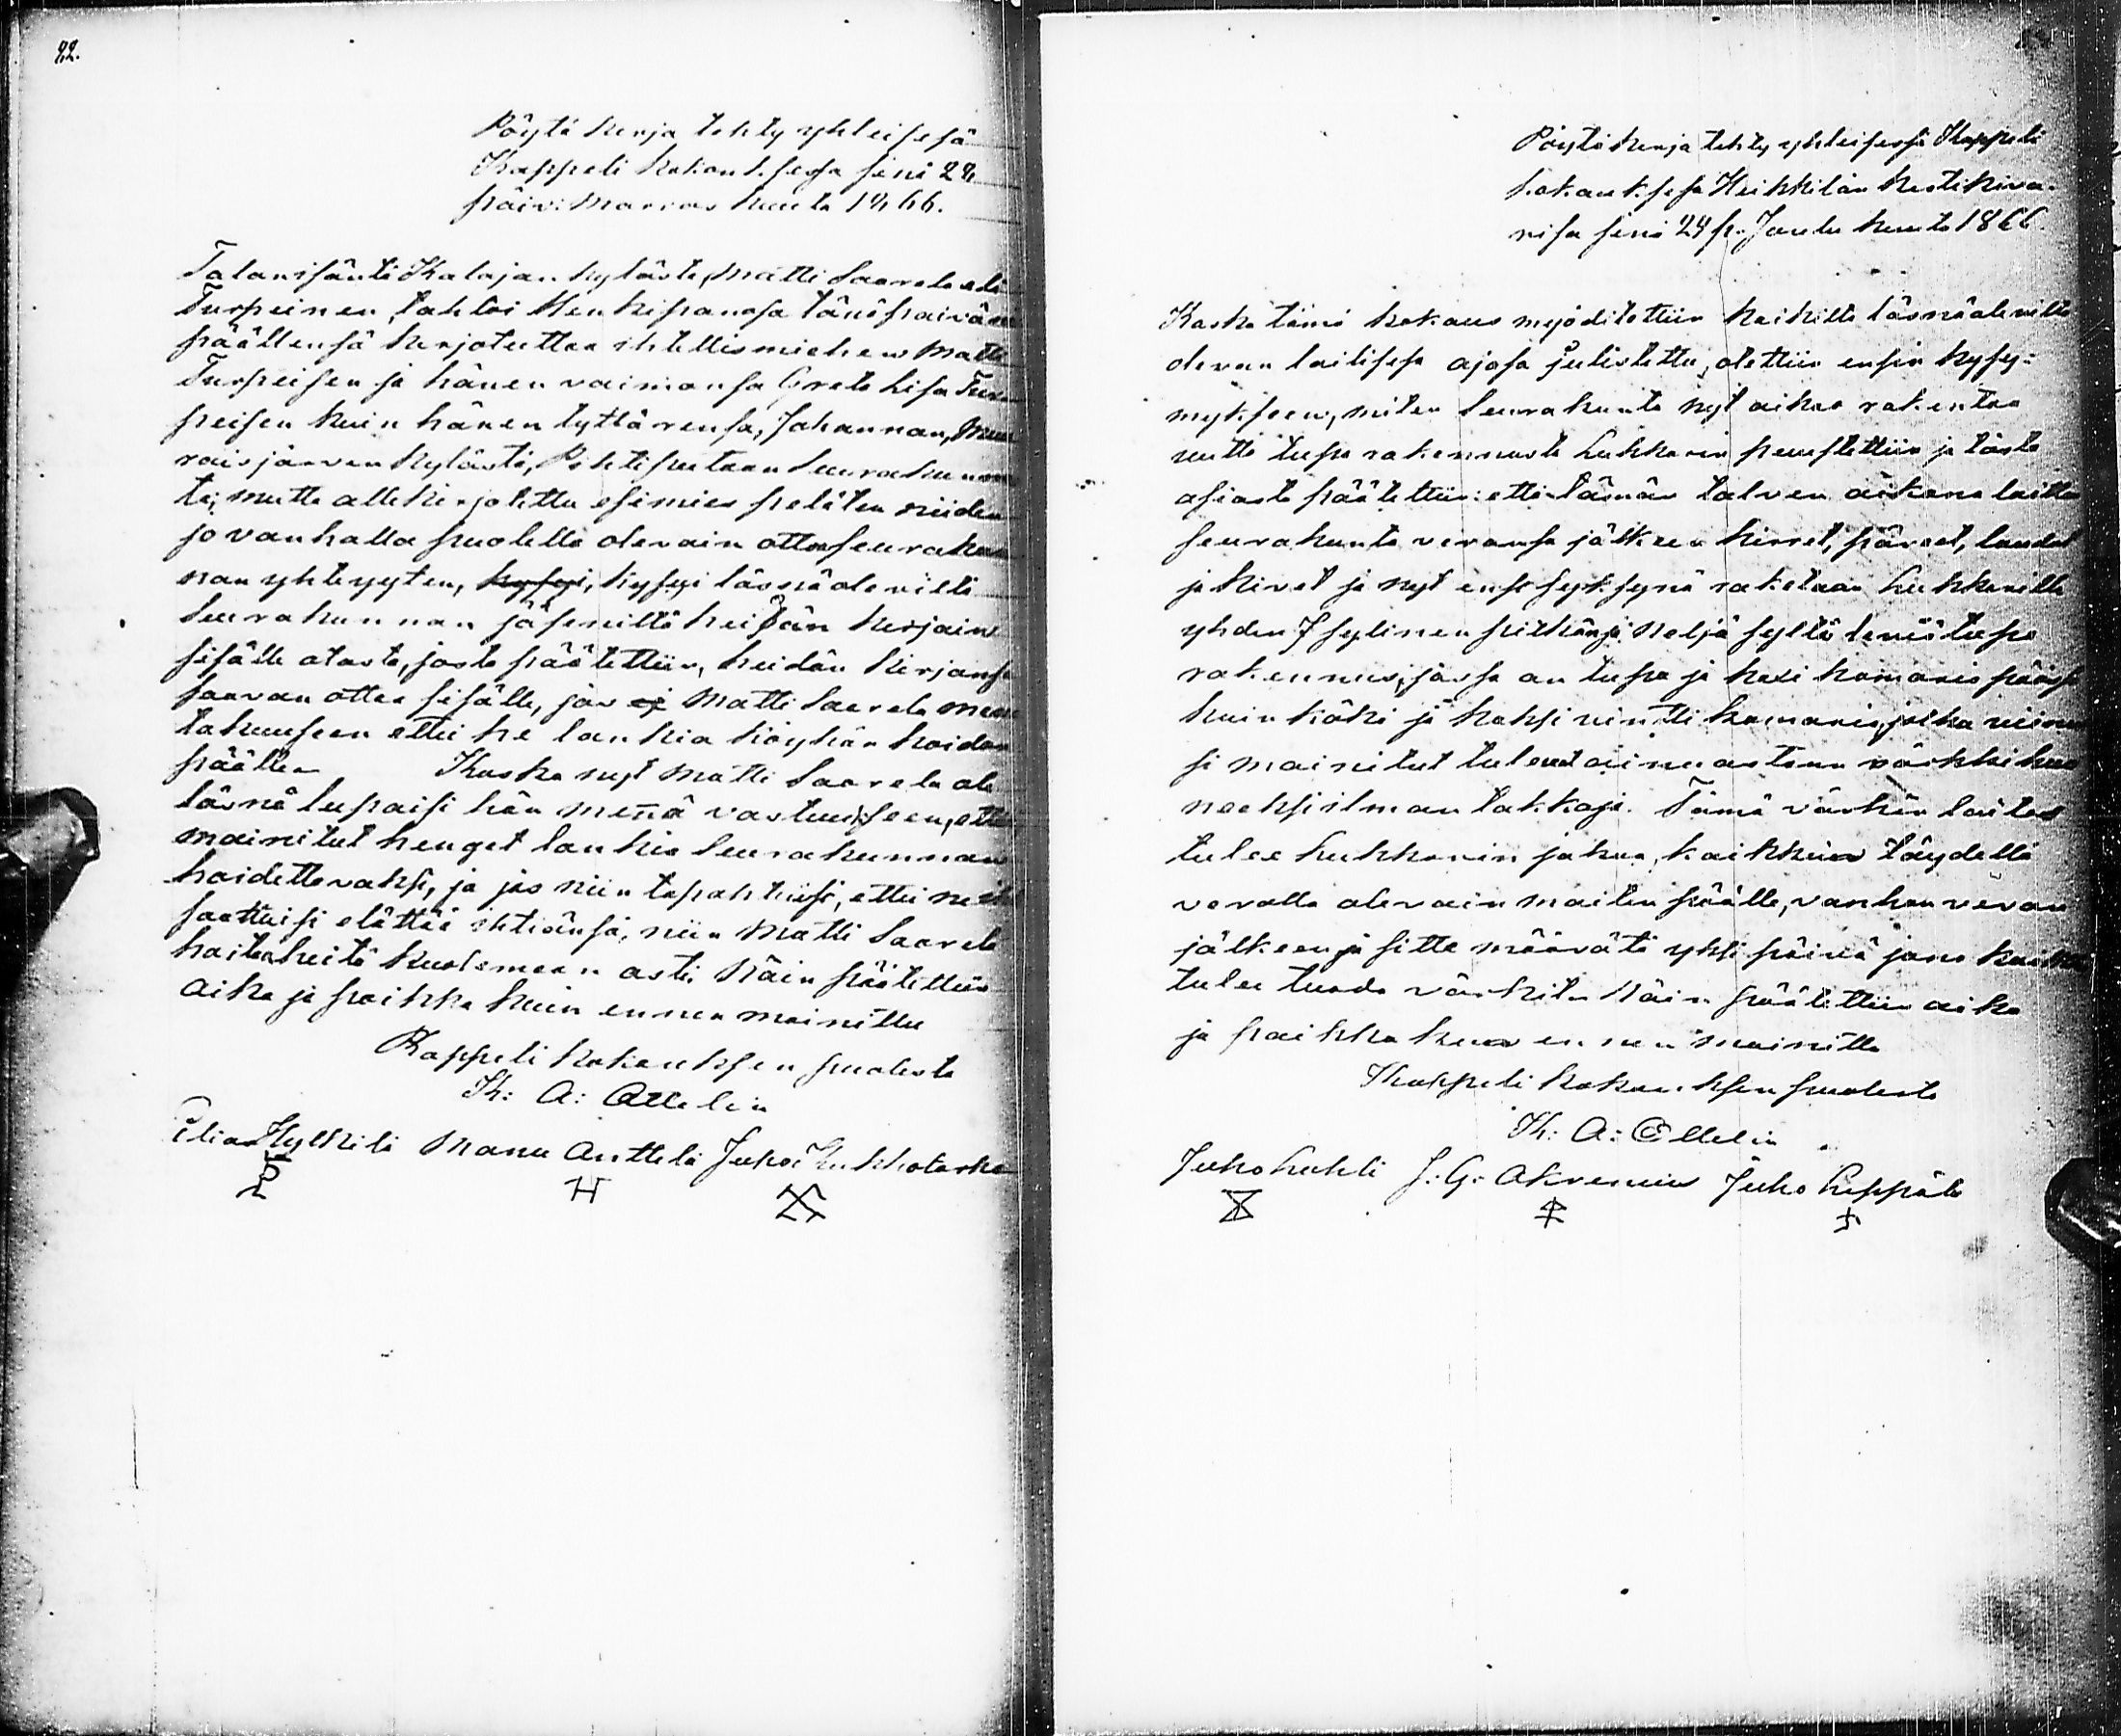 22.
Pöytä kirja tehty yhteisesä
Kappeli kokouksessa sinä 28
päiv: Marras kuuta 1866.
Talonisäntä Kalajan kylästä, Matti Saarela eli
Turpeinen, tahtoi Henkipanosa tänäpaivänä
päällensä kirjoteuttaa ihtellismiehen Matti
Turpeisen ja hänen vaimonsa Greta Lisa Tur
peisen kuin hänen tyttärensä, Johannan, Muu
raisjärven kylästä, Pihtiputaan Seurakunnas
ta; mutta allekirjotettu esimies peläten niiden
jo vanhalla puolella olevain ottaa seurakun
nan yhteyyten, kysyi, kysyi läsnäolevilta
Seurakunnan jäseniltä heidän kirjain
sisälle otosta, josta päätettiin, heidän kirjansa
saavan ottaa sisälle, jos ej Matti Saarela mene
takuuseen ettei he lankia köyhän hoidon
päälle. Koska nyt Matti Saarela oli
läsnä lupaisi hän mennä vastuukseen, ettei
mainitut henget lankia Seurakunnan
hoidettavaksi, ja jos niin tapahtuisi, ettei ne its
saattaisi elättää ihtiänsä, niin Matti Saarela
hoitaa heitä kuolemaan asti. Näin päätettiin
aika ja paikka kuin ennen mainittu
Kappeli kokouksen puolesta
K: A: Ellelin
Elias Hylkilä Manu Anttila Juho Kukkotarha
Pöytäkirja tehty yhteisessä Kappeli
kokouksesa Heikkilän kestikiva-
risa sinä 24 p. Joulu kuuta 1866.
Koska tämä kokous myöditettiin kaikilta läsnäolevilta
olevan laillisesa ajasa julistettu, otettiin ensin kysy-
mykseen, miten Seurakunta nyt aikoo rakentaa
uutta tupa rakennusta Lukkarin puustettiin ja tästä
asiasta päätettiin: että tämän talven aikana laittaa
seurakunta veronsa jälkeen hirret, päreet, laudat
ja kivet ja nyt ensi syksynä raketaan Lukkarille
yhden 7 sylinen pitkänä neljä syltä leviä tupa
rakennus, jossa on tupa ja kaxi kamaria pääsä
kuin köki ja kaksi vintti kamaria, jotka viimei
si mainitut tulevat ainoastaan värkki huo
neeksi ilman takkaji. Tämä värkin laitos
tulee Lukkarin jakaa, kaikkein täydellä
verolla olevain maiten päälle, vanhan veron
jälkeen ja sitte määrätä yksi päivä jona kaikkein
tulee tuoda värkitn Näin päätettiin aika
ja paikka kuin ennen mainittu
Kappeli kokouksen puolesta
K: A: Ellelin
Juho Lahti J: G: Akrenius Juho Leppälä